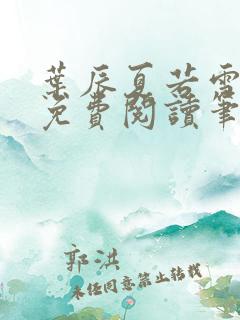 葉辰夏若雪
免費閱讀筆
郭洪
未經同意禁止轉載